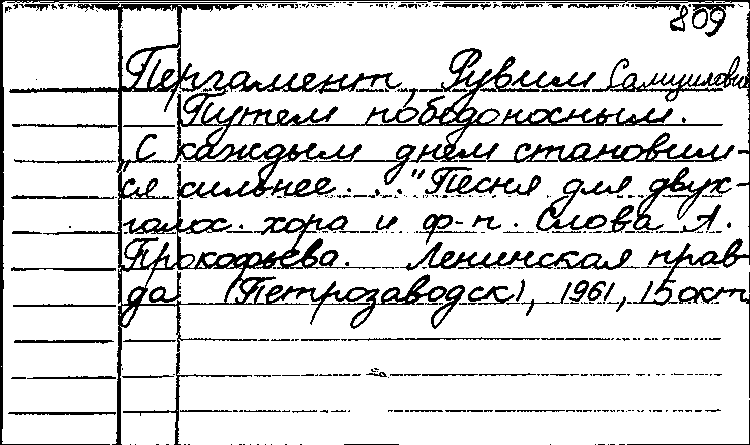 809
Пергамент, Рувим Самуилович
Путем победоносным.
"С каждым днем становим-
ся сильнее..." Песня для двух-
голос. хора и ф-п. Слова А.
Прокофьева. Ленинская прав-
да (Петрозаводск), 1961, 15 окт.